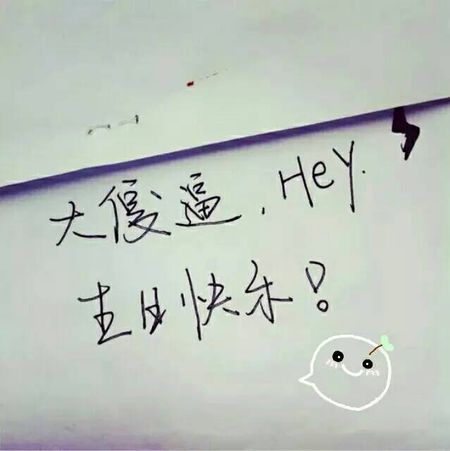 大傻逼，Hey.
生日快乐！